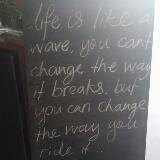 life is like a
wave, you cant
change the way
it breaks, but
you can change
the way you
ride it..